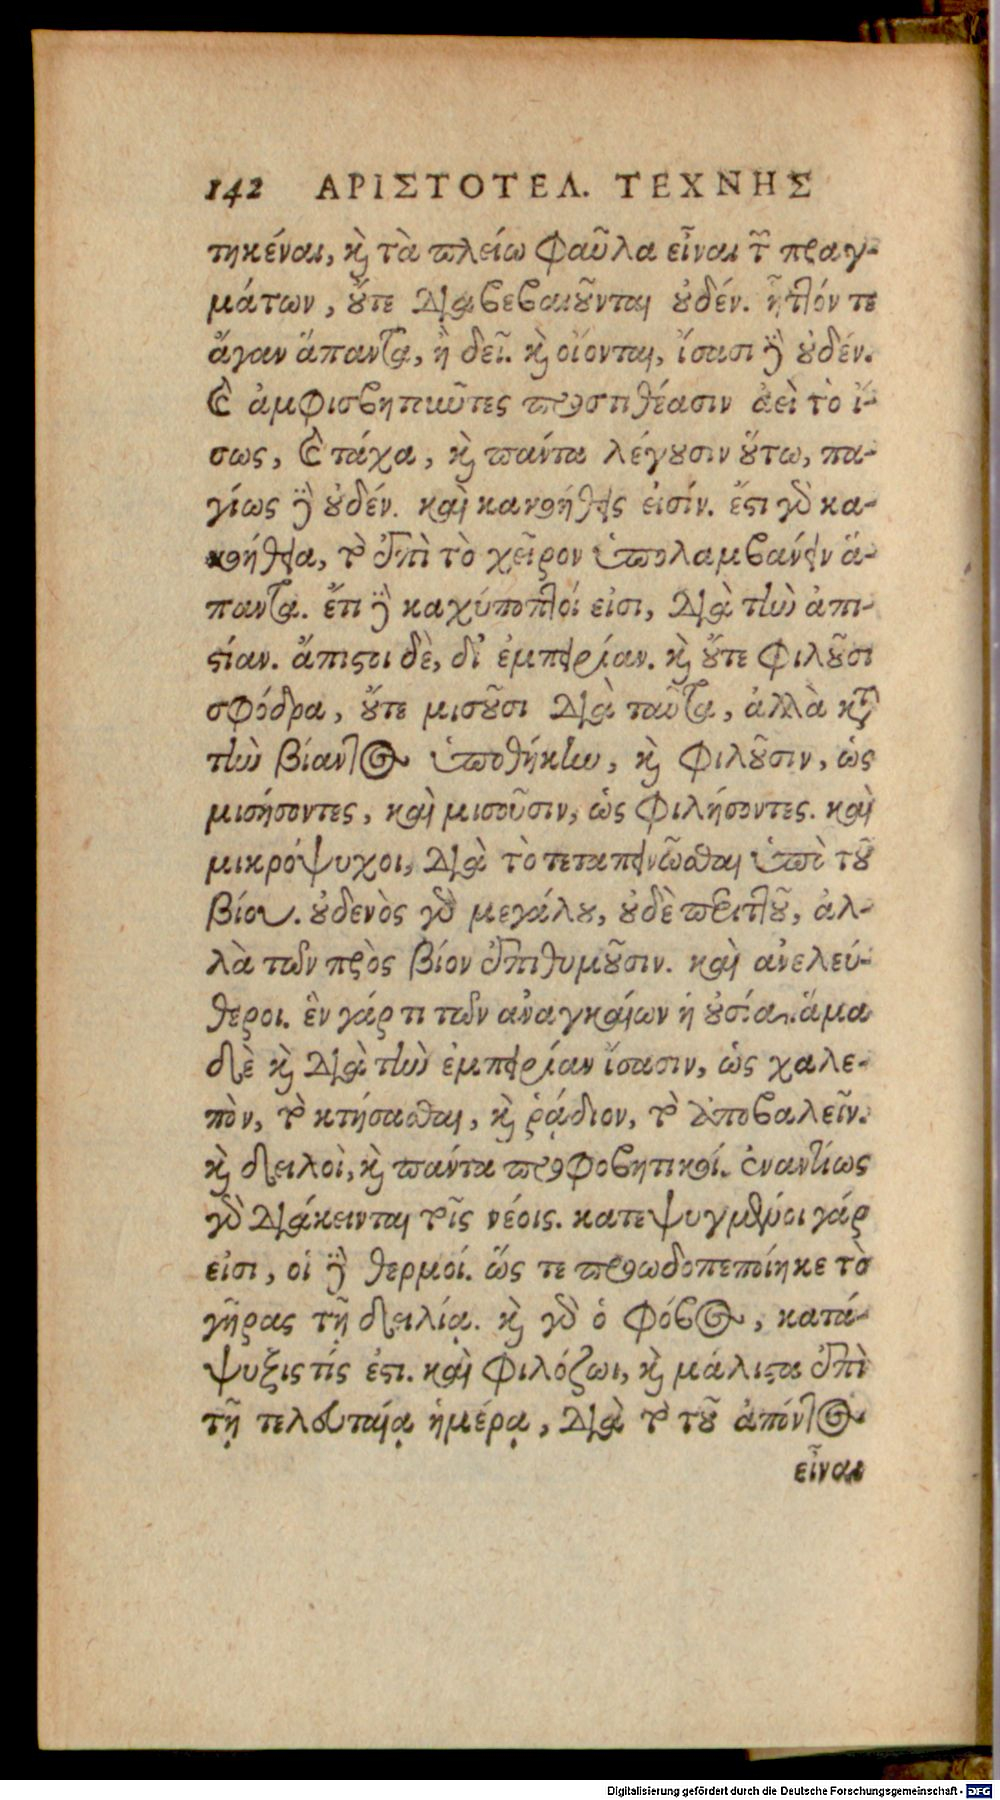 142 ΑΡΙΣΤΟΤΕΛ. ΤΕΧΝΗΣ
τηκέναι, καὶ τὰ πλείω φαῦλα εἶναι τῶν πραγ-
μάτων, οὔτε διαβεβαιοῦνται οὐδέν. ἧττόν τε
ἄγαν ἅπαντα, ἢ δεῖ. καὶ οἴονται, ἴσασι δὲ οὐδέν.
καὶ ἀμφισβητοῦντες προστιθέασιν ἀεὶ τὸ ἴ-
σως, καὶ τάχα, καὶ πάντα λέγουσιν οὕτω, πα-
γίως δὲ οὐδέν. καὶ κακοήθεις εἰσίν. ἔστι γὰρ κα-
κοήθεια, τὸ ἐπὶ τὸ χεῖρον ὑπολαμβάνειν ἅ-
παντα. ἔτι δὲ καχύποπτοί εἰσι, διὰ τὴν ἀπι-
στίαν. ἄπιστοι δὲ, δι' ἐμπειρίαν. καὶ οὔτε φιλοῦσι
σφόδρα, οὔτε μισοῦσι διὰ ταῦτα, ἀλλὰ κατὰ
τὴν βίαντος ὑποθήκην, καὶ φιλοῦσιν, ὡς
μισήσοντες, καὶ μισοῦσιν, ὡς φιλήσοντες. καὶ
μικρόψυχοι, διὰ τὸ τεταπεινῶσθαι ὑπὸ τοῦ
βίου. οὐδενὸς γὰρ μεγάλου, οὐδὲ περιττοῦ, ἀλ-
λὰ τῶν πρὸς βίον ἐπιθυμοῦσιν. καὶ ἀνελεύ-
θεροι. ἓν γάρ τι τῶν ἀναγκαίων ἡ οὐσία. ἅμα
δὲ καὶ διὰ τὴν ἐμπειρίαν ἴσασιν, ὡς χαλε-
πὸν, τὸ κτήσασθαι, καὶ ῥᾴδιον, τὸ ἀποβαλεῖν.
καὶ δειλοὶ, καὶ πάντα προφοβητικοί. ἐναντίως
γὰρ διάκεινται τοῖς νέοις. κατεψυγμένοι γάρ
εἰσι, οἱ δὲ θερμοί. ὥς τε προωδοπεποίηκε τὸ
γῆρας τῇ δειλίᾳ. καὶ γὰρ ὁ φόβος, κατά-
ψυξις τίς ἐστι. καὶ φιλόζωι, καὶ μάλιστα ἐπὶ
τῇ τελευταίᾳ ἡμέρᾳ, διὰ τὸ τοῦ ἀπόντος
εἶναι
Digitalisierung gefördert durch die Deutsche Forschungsgemeinschaft - DFG